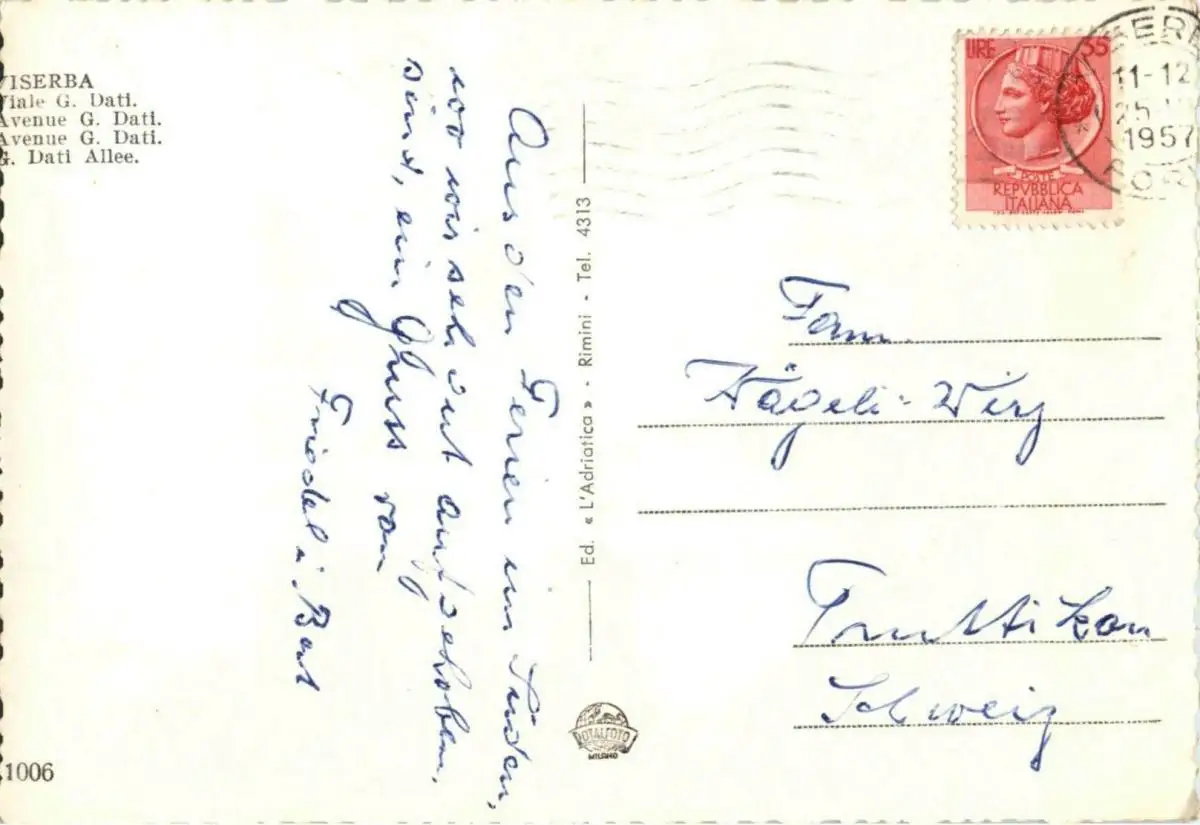 VISERBA
Viale G. Dati.
Avenue G. Dati.
Avenue G. Dati.
G. Dati Allee.
Aus den Ferien im Süden,
wo wir sehr gut aufgehoben
sind, ein Gruss von
Friedel u.
Ed. « L'Adriatica » - Rimini - Tel. 4313
LIRE 35
POSTE
REPVBBLICA
ITALIANA
11-12
25
1957
Fam.
Nägeli-Wirz
Truttikon
Schweiz
TOTALFOTO
MILANO
1006